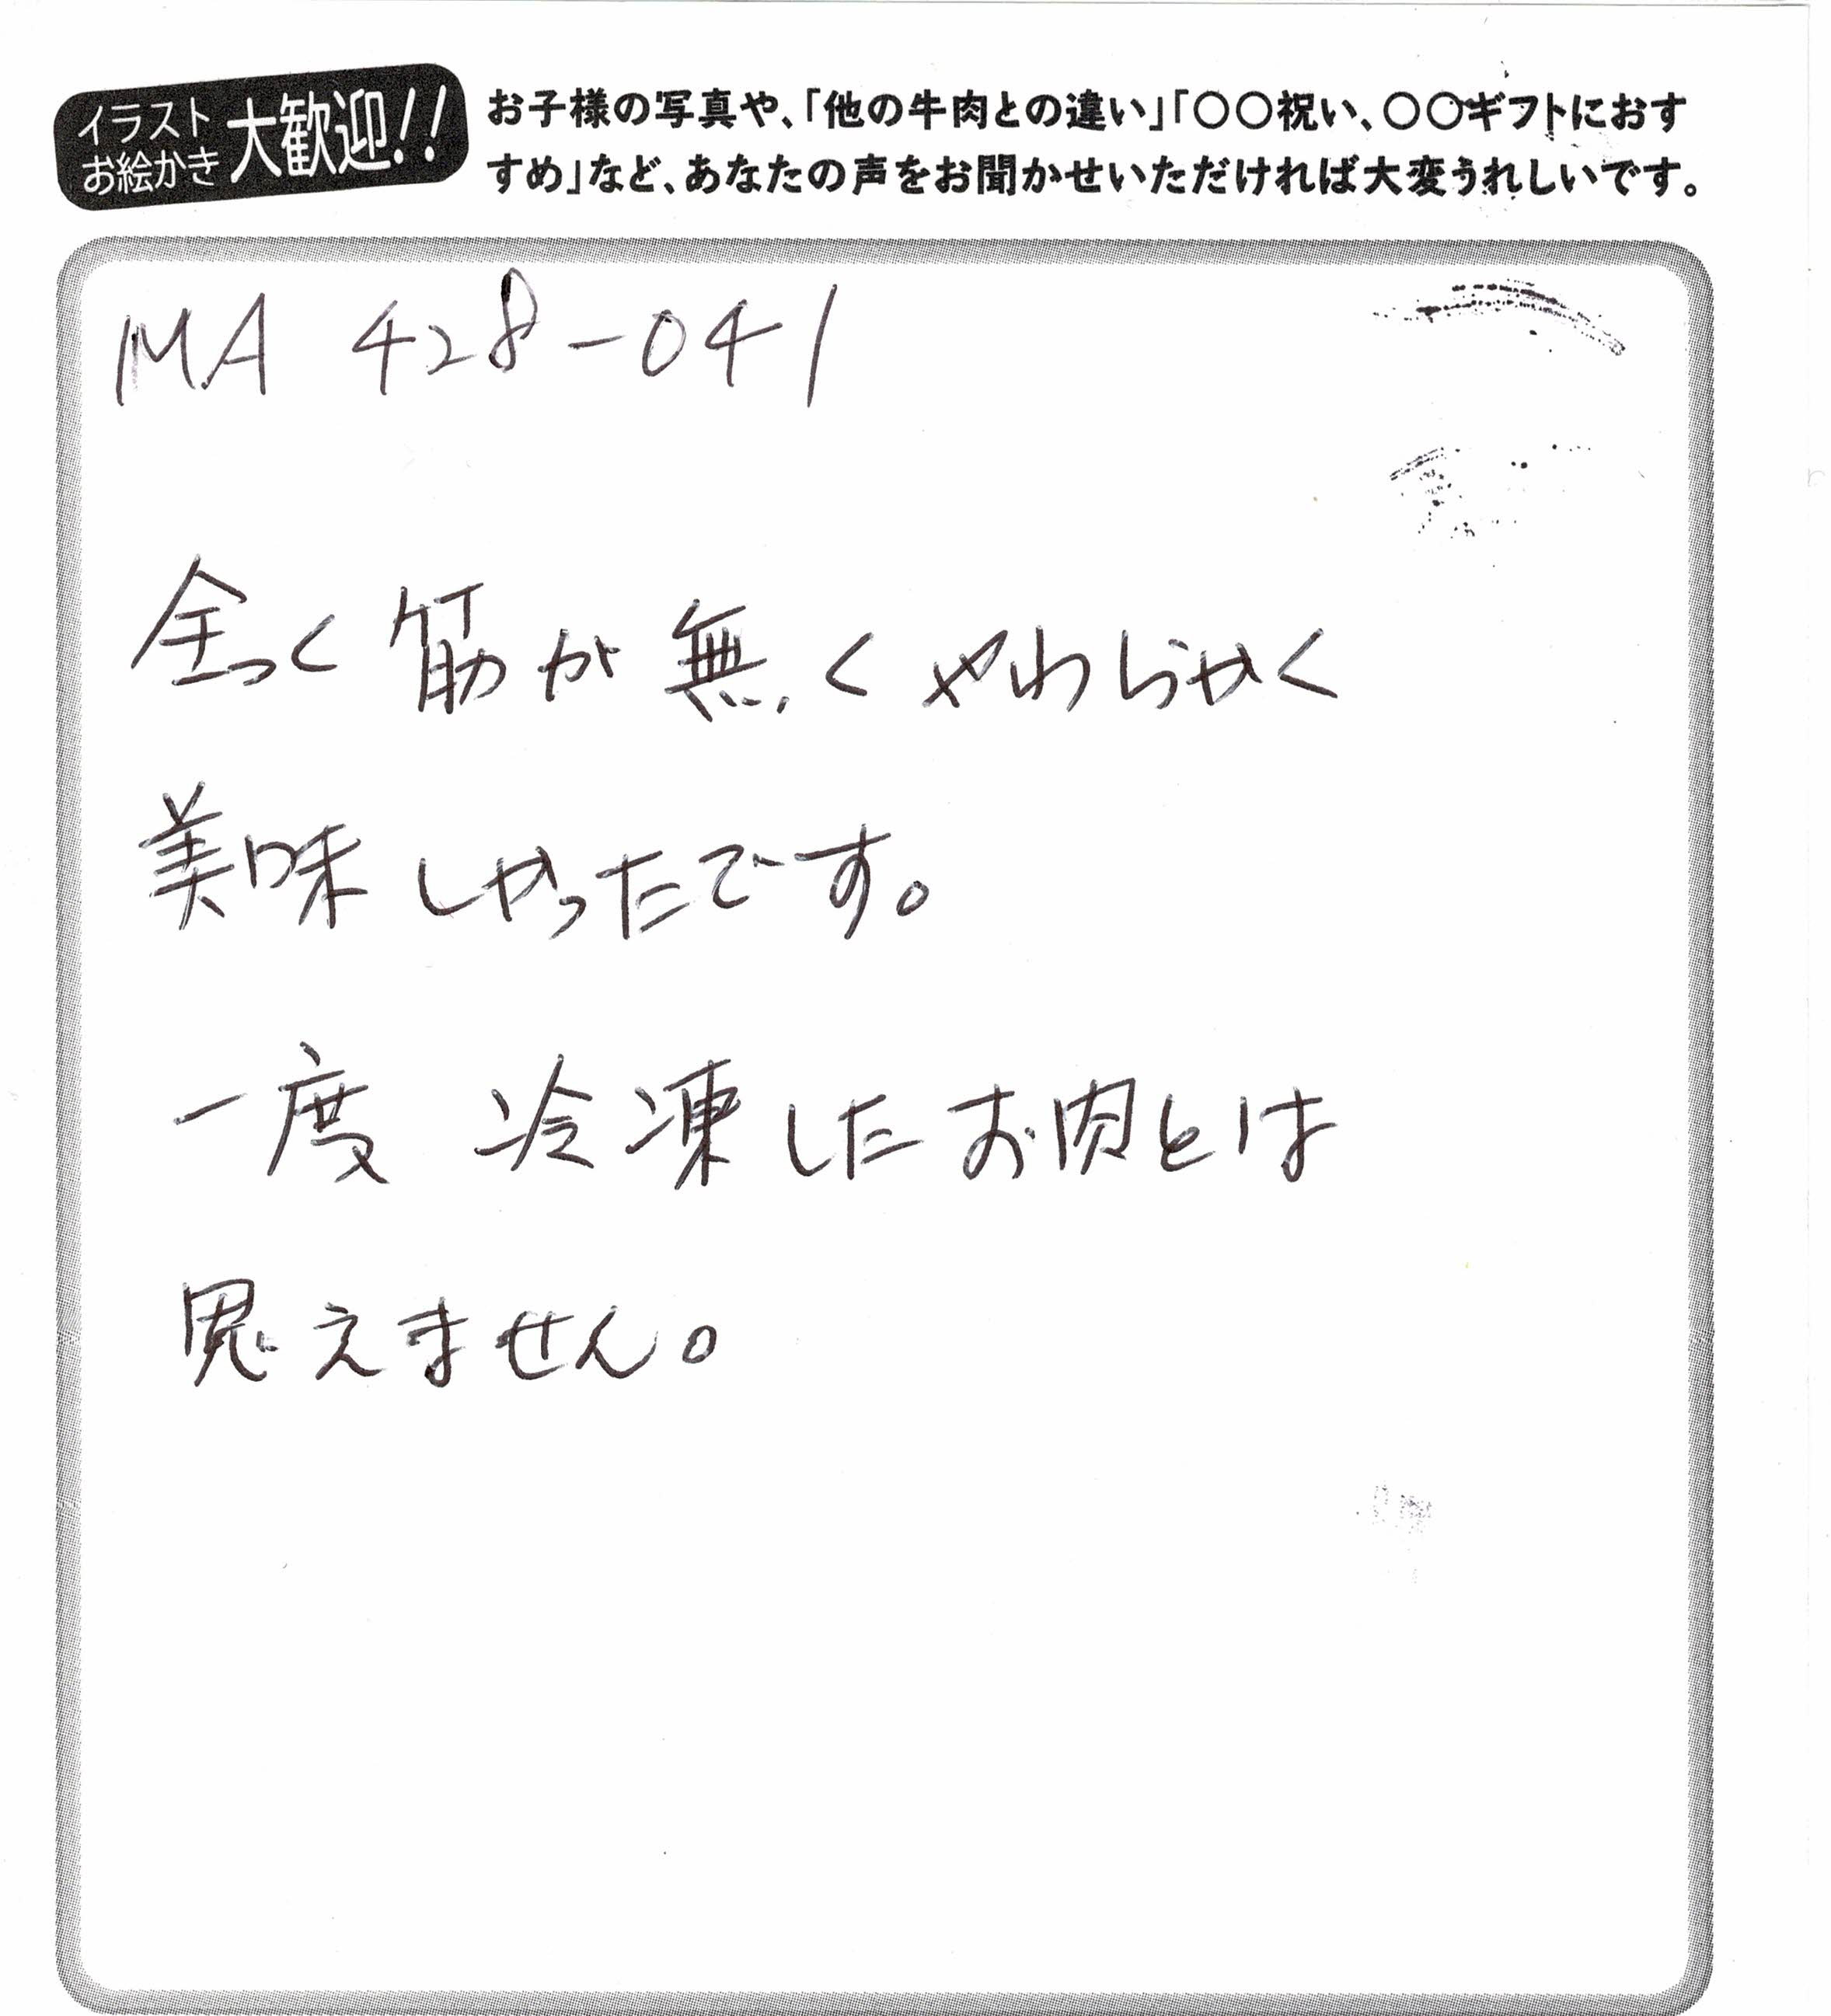 イラスト
お絵かき
大歓迎!!
お子様の写真や、「他の牛肉との違い」「〇〇祝い、〇〇ギフトにおす
すめ」など、あなたの声をお聞かせいただければ大変うれしいです。
MA 428-041
全っく筋が無くやわらかく
美味しかったです。
一度 冷凍したお肉とは
思えません。